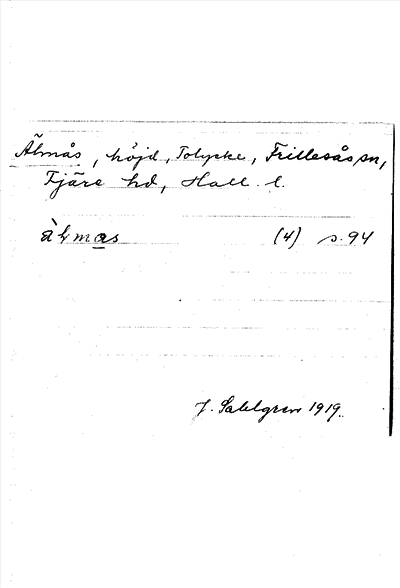 Älmås, höjd, Tolycke, Frillesås sn,
Fjäre hd, Hall. l.
àlmas (4) s. 94
J. Sahlgren 1919.